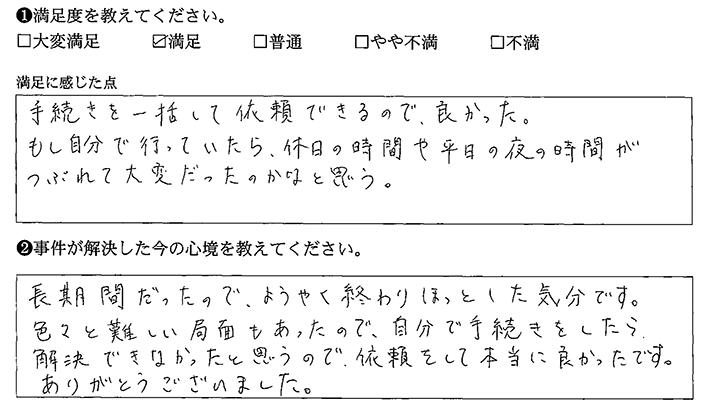 ❶満足度を教えてください。
□大変満足 ☑満足 □普通 □やや不満 □不満
満足に感じた点
手続きを一括して依頼できるので、良かった。
もし自分で行っていたら、休日の時間や平日の夜の時間が
つぶれて大変だったのかなと思う。
❷事件が解決した今の心境を教えてください。
長期間だったので、ようやく終わりほっとした気分です。
色々と難しい局面もあったので、自分で手続きをしたら
解決できなかったと思うので、依頼をして本当に良かったです。
ありがとうございました。